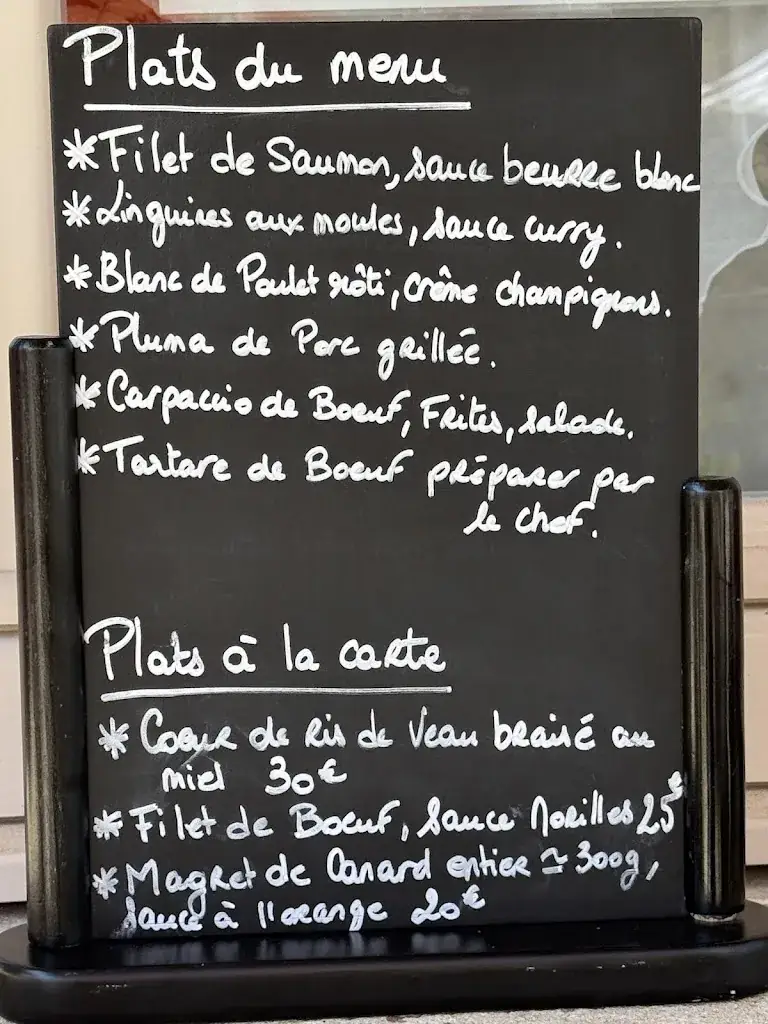 Plats du menu
*Filet de Saumon, sauce beurre blanc
*Linguines aux moules, sauce curry.
*Blanc de Poulet rôti, crême champignons.
*Pluma de Porc grillée.
*Carpaccio de Boeuf, Frites, salade.
*Tartare de Boeuf préparer par
le chef.
Plats à la carte
* Coeur de Ris de Veau braisé au
miel 30€
* Filet de Boeuf, sauce Morilles 25€
* Magret de Canard entier ≃ 300g,
sauce à l'orange 20€